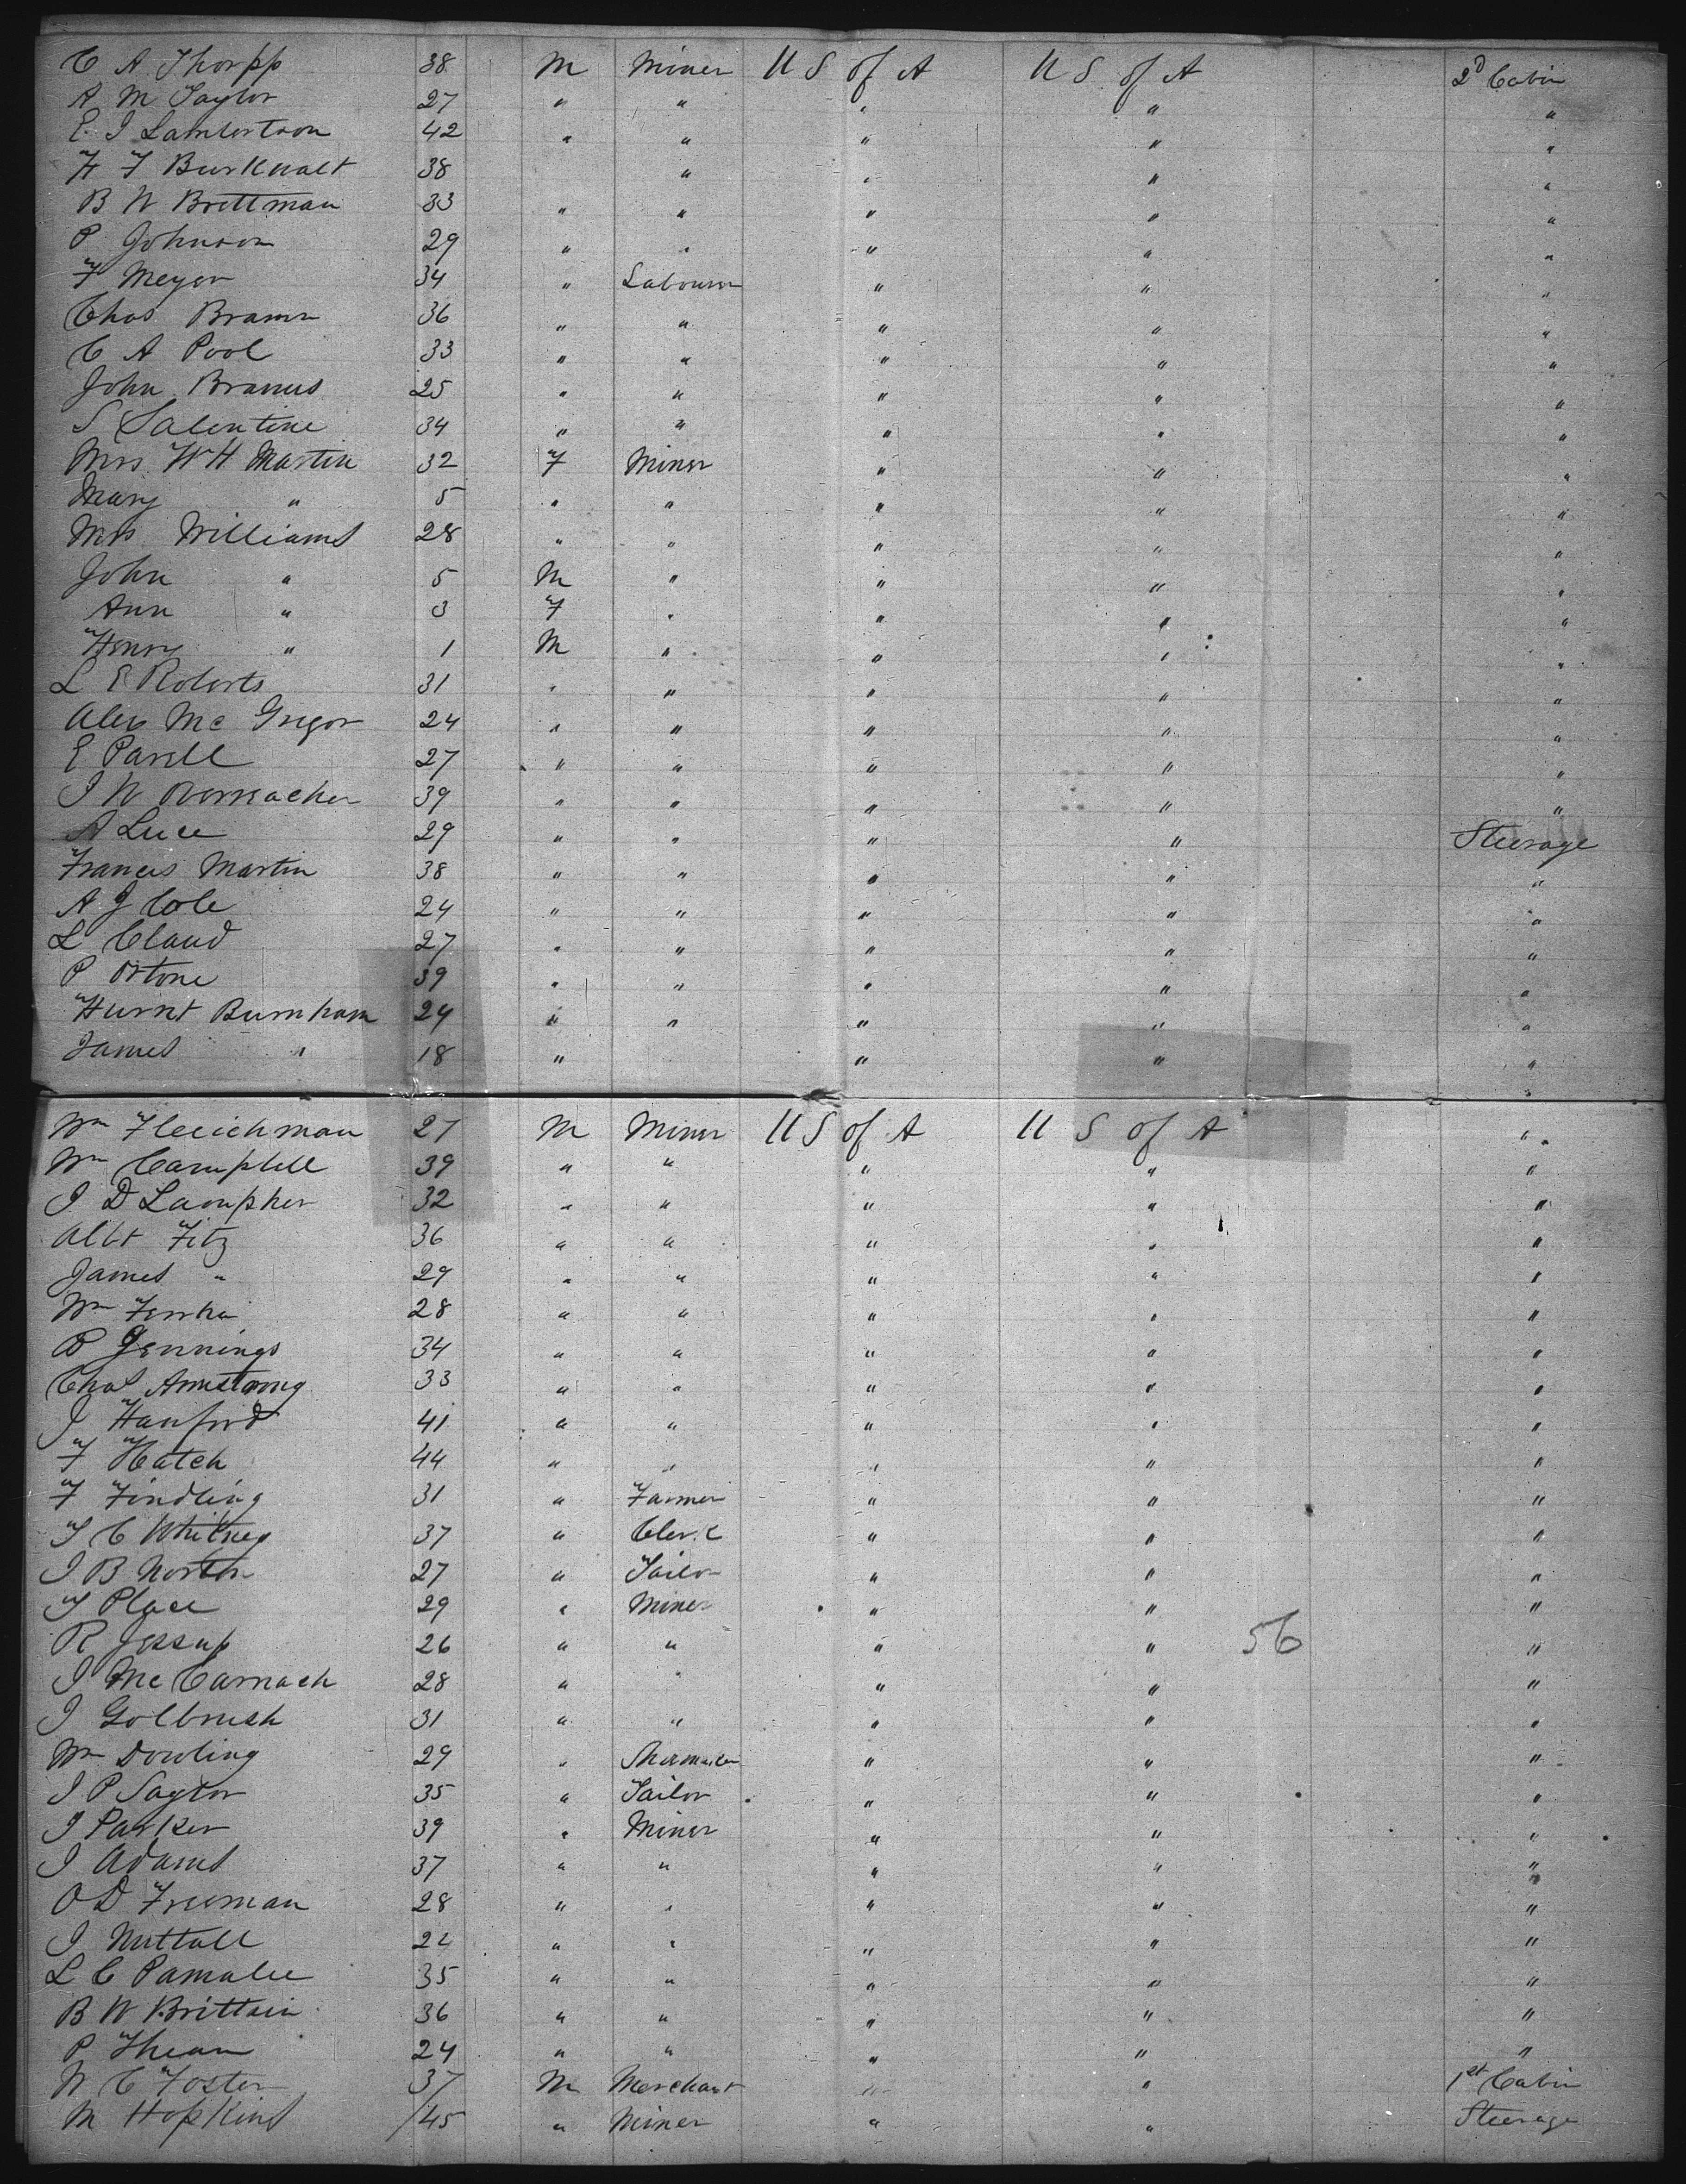 C A Thorpp 38 M Miner U S of A U S of A 2d Cabin
A M Taylor 27 " " " " "
E. I Lambertson 42 " " " " "
H F Burknalt 38 " " " "
B W Brettman 33 " " " " "
P Johnson 29 " " " " "
F Meyer 34 " Labourer " " "
Chas Braman 36 " " " " "
C A Pool 33 " " " " "
John Branus 25 " " " " "
S Salentine 34 " " " " "
Mrs W H Martin 32 F Miner " " "
Mary " 5 " " " " "
Mrs Williams 28 " " " " "
John " 5 M " " " "
Ann " 3 F " " " "
Henry " 1 M " " " "
L E Roberts 31 " " " " "
Alex Mc Gregor 24 " " " " "
E Parell 27 " " " " "
I W Overracher 39 " " " " "
A Luce 29 " " " " Steerage
Francis Martin 38 " " " " "
A J Cole 24 " " " " "
L Claud 27 " " " " "
P Ortone 39 " " " " "
Burnham 24 " " " " "
James " 18 " " " "
Wm Fleichman 27 M Miner U S of A U S of A "
Wm Campbell 39 " " " " "
I D Lampher 32 " " " " "
Albt Fitz 36 " " " " "
James " 29 " " " " "
Wm 28 " " " " "
P Jennings 34 " " " " "
Chas Armstrong 33 " " " " "
J Hanford 41 " " " " "
F Hatch 44 " " " " "
F Findling 31 " Farmer " " "
T C Whitney 37 " Clerk " " "
I B Norton 27 " Tailor " " "
T Place 29 " Miner " " "
R Jessup 26 " " " " 56 "
I Mc Carnach 28 " " " " "
J Golbrush 31 " " " " "
Wm Dowling 29 " Shoemaker " " "
I P Saytor 35 " Tailor " " "
I Parker 39 " Miner " " "
I Adams 37 " " " " "
O D Freeman 28 " " " " "
I Nuttall 22 " " " " "
L C Pamalee 35 " " " " "
B W Brittain 36 " " " " "
P Thean 24 " " " " "
W C Foster 37 M Merchant " " 1st Cabin
M Hopkins /45 " Miner " " Steerage